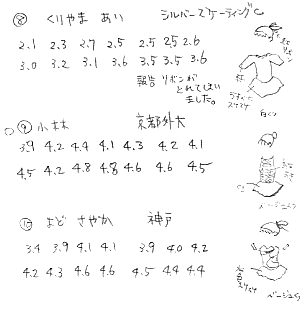 ⑧ くりやま あい シルバースケーティングC
2.1 2.3 2.7 2.5 2.5 2.5 2.6
3.0 3.2 3.1 3.6 3.5 3.5 3.6
報告 リボンが
とれてしまい
ました。
白くつ
⑨ 小林 京都外大
3.9 4.2 4.4 4.1 4.3 4.2 4.1
4.5 4.2 4.8 4.8 4.6 4.6 4.5
ベージュくつ
⑩ まど さやか 神戸
3.4 3.9 4.1 4.1 3.9 4.0 4.2
4.2 4.3 4.6 4.6 4.5 4.4 4.4
ベージュくつ